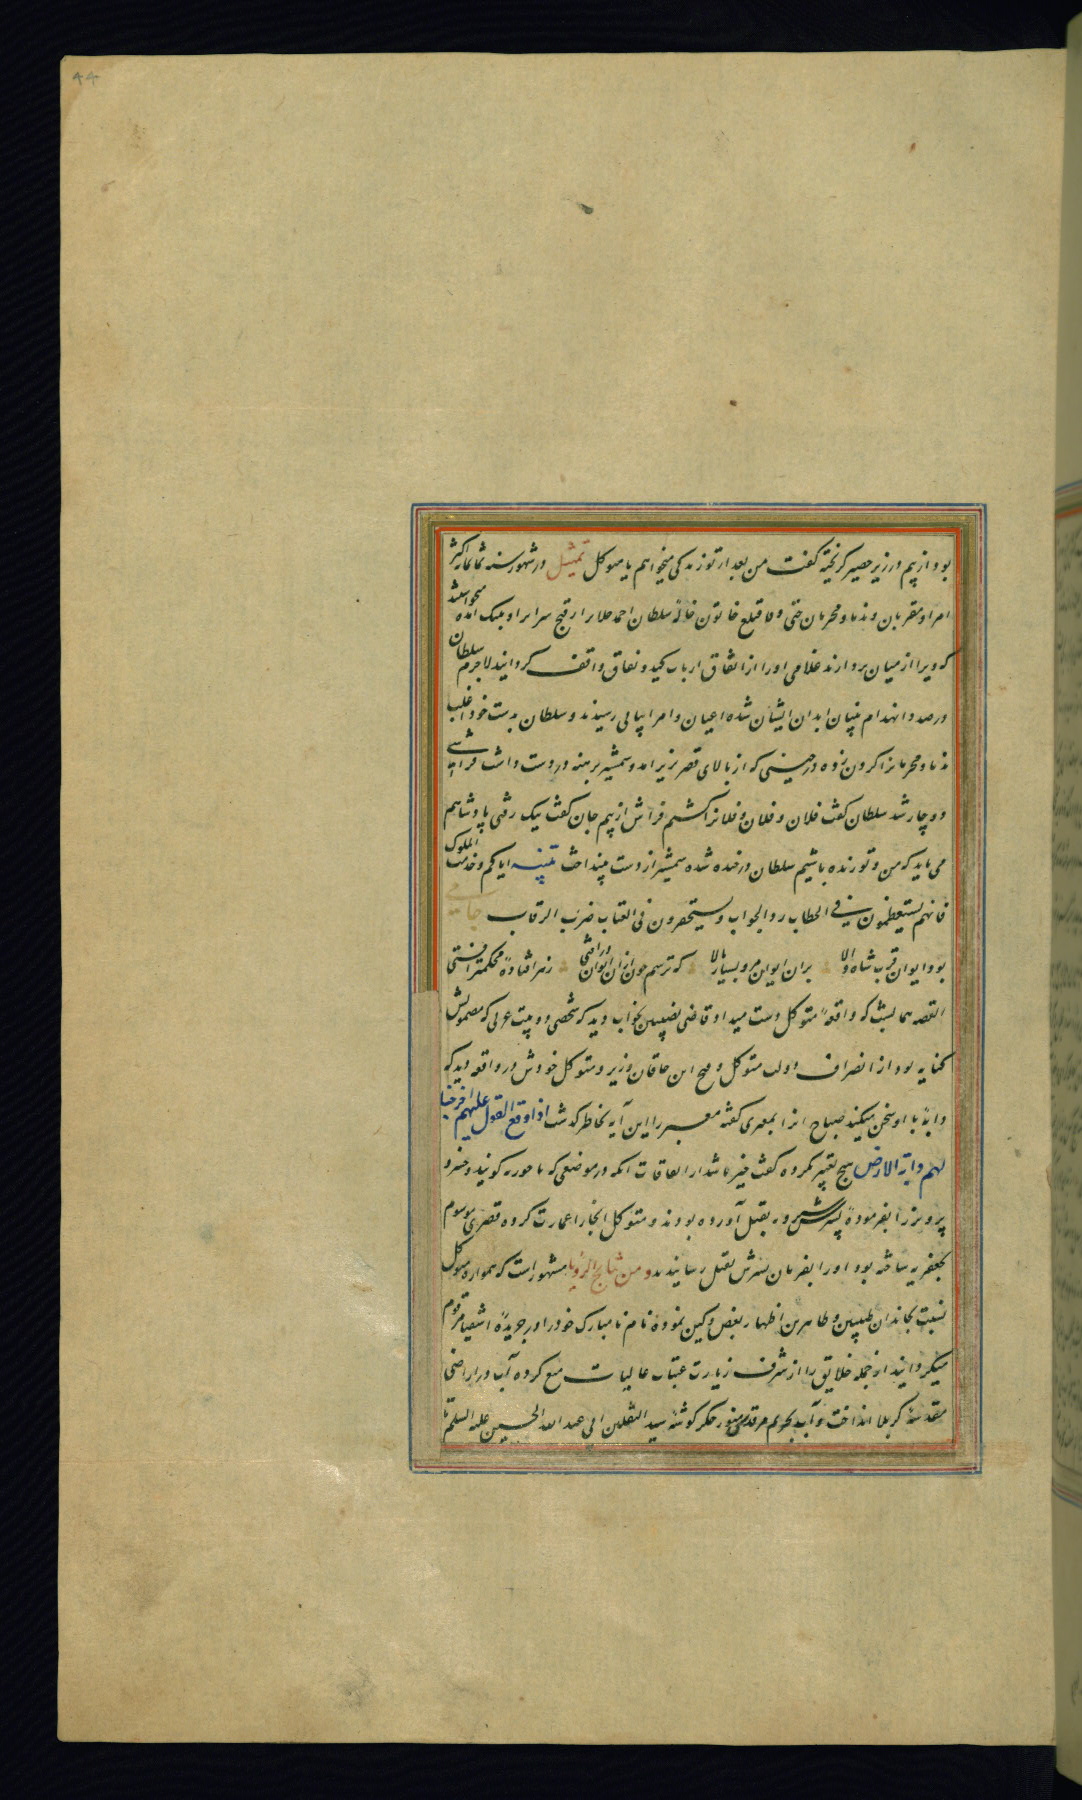 ۴۴
بود از بیم در زیر حصیر گریخته گفت من بعد از تو زندگی میخواهم یا متوکل تمثیل در شهور سنه ثمانمائه اکثر
امرا و مقربان و ندما و محرمان حتی خاتون سلطان احمد جلایر از قبح سرایر او بتنک آمده میخواستند
که ویرا از میان بردارند غلامی او را از اتفاق ارباب کید و نفاق واقف گردانید لاجرم سلطان
در صدد انهدام بنیان ابدان ایشان شده اعیان و امرا و سلطان بدست خود اغلب
ندما و محرمانرا گردن زده در حینی که از بالای قصر بزیر آمد و شمشیر برهنه در دست داشت فراشی
دوچار شد سلطان گفت فلان و فلان و فلانرا کشتم فراش از بیم جان گفت نیک رفتی پادشاهم
می باید که من و تو زنده باشیم سلطان در خنده شده شمشیر از دست بینداخت تنبیه ایاکم و خدمت الملوک
فانهم یستعظمون فی الخطاب رد الجواب و یستحقرون فی العقاب ضرب الرقاب جامی
بود ایوان قرب شاه والا بر آن ایوان مرو بسیار بالا که ترسم چون از آن ایوان درافتی ز هر افتاده محکمتر افتی
القصه واقعهٔ متوکل دست میداد قاضی نصیبین بخواب دید که شخصی دو بیت عربی که مضمونش
کنایه بود از انصراف دولت متوکل و فتح ابن خاقان وزیر و متوکل خودش در واقعه دید که
دابهٔ با او سخن میکند صباح آنرا بمعبری گفته معبر را این آیه بخاطر گذشت اذا وقع القول علیهم اخرجنا
لهم دابة الارض هیچ تعبیر نکرده گفت خیر باشد از اتفاقات آنکه در موضعی که ماحوزه گویند و خسرو
پرویز را بفرمودهٔ پسرش شیرویه بقتل آورده بودند و متوکل آنجا را عمارت کرده قصری موسوم
بجعفریه ساخته بود او را بفرمان پسرش بقتل رسانیدند و من نتایج الرویا مشهور است که همواره متوکل
نسبت بخاندان طیبین و طاهرین اظهار بغض و کین نموده نام نامبارک خود را در جریدهٔ اشقیا مرقوم
میگردانید از جمله خلایق را از شرف زیارت عتبات عالیات منع کرده آب در اراضی
مقدسهٔ کربلا انداخت و آب بحریم مرقد منور جگر گوشهٔ سید الثقلین ابی عبد الله الحسین علیه السلم